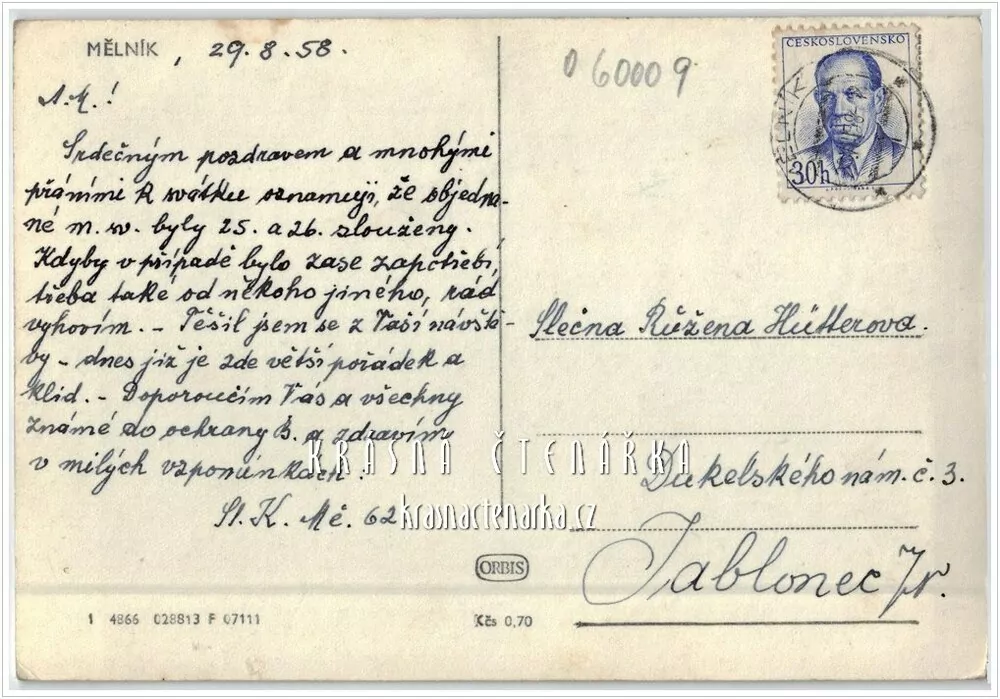 MĚLNÍK, 29.8.58.
Srdečným pozdravem a mnohými
přáními k svátku oznamuji, že objedna-
né m. sv. byly 25. a 26. slouženy.
Kdyby v případě bylo zase zapotřebí,
třeba také od někoho jiného, rád
vyhovím. - Těšil jsem se z Vaší návště-
vy - dnes již je zde větší pořádek a
klid. - Doporoučím Vás a všechny
známé do ochrany B. a zdravím
v milých vzpomínkách!
St. K. Mě. 62
1 4866 028813 F 07111
ORBIS
Kčs 0,70
060009
ČESKOSLOVENSKO
30h
MĚLNÍK
Slečna Růžena Hütterova.
Dukelského nám. č. 3.
Jablonec /N.
KRÁSNÁ ČTENÁŘKA
krasnactenarka.cz